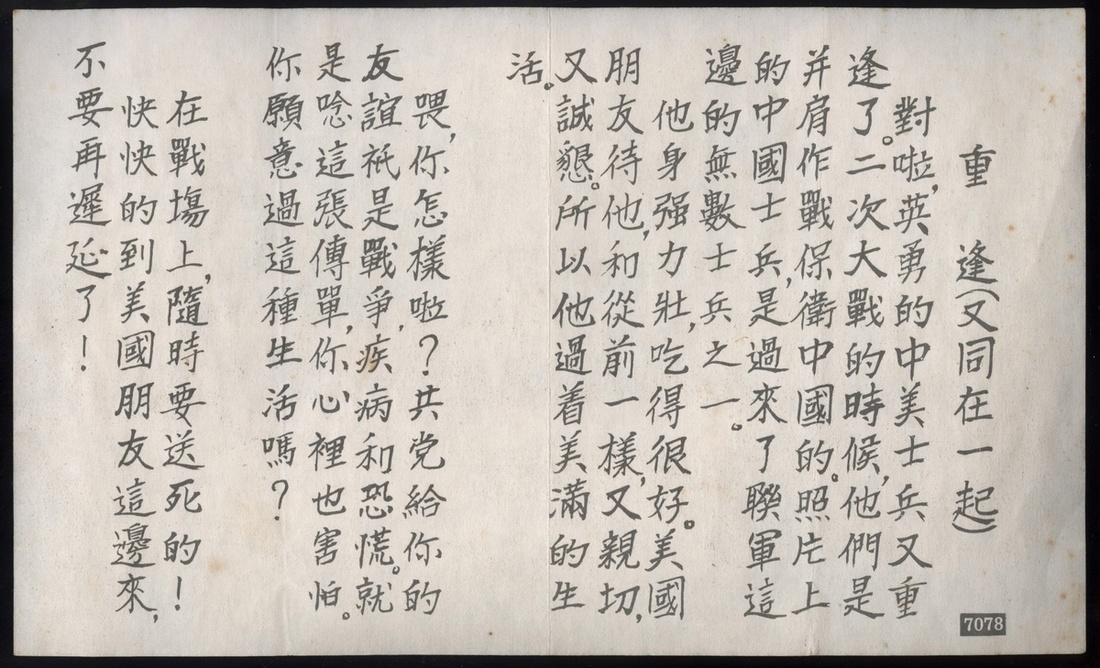 重　逢(又同在一起)
對啦,英勇的中美士兵又重
逢了。二次大戰的時候,他們是
并肩作戰保衛中國的。照片上
的中國士兵,是過來了聯軍這
邊的無數士兵之一。
他身强力壯,吃得很好。美國
朋友待他,和從前一樣,又親切,
又誠懇。所以他過着美滿的生
活。
喂,你怎樣啦?共党給你的
友誼祇是戰爭,疾病和恐慌。就
是唸這張傳單,你心裡也害怕。
你願意過這種生活嗎?
在戰場上,隨時要送死的!
快快的到美國朋友這邊來,
不要再遲延了!
7078